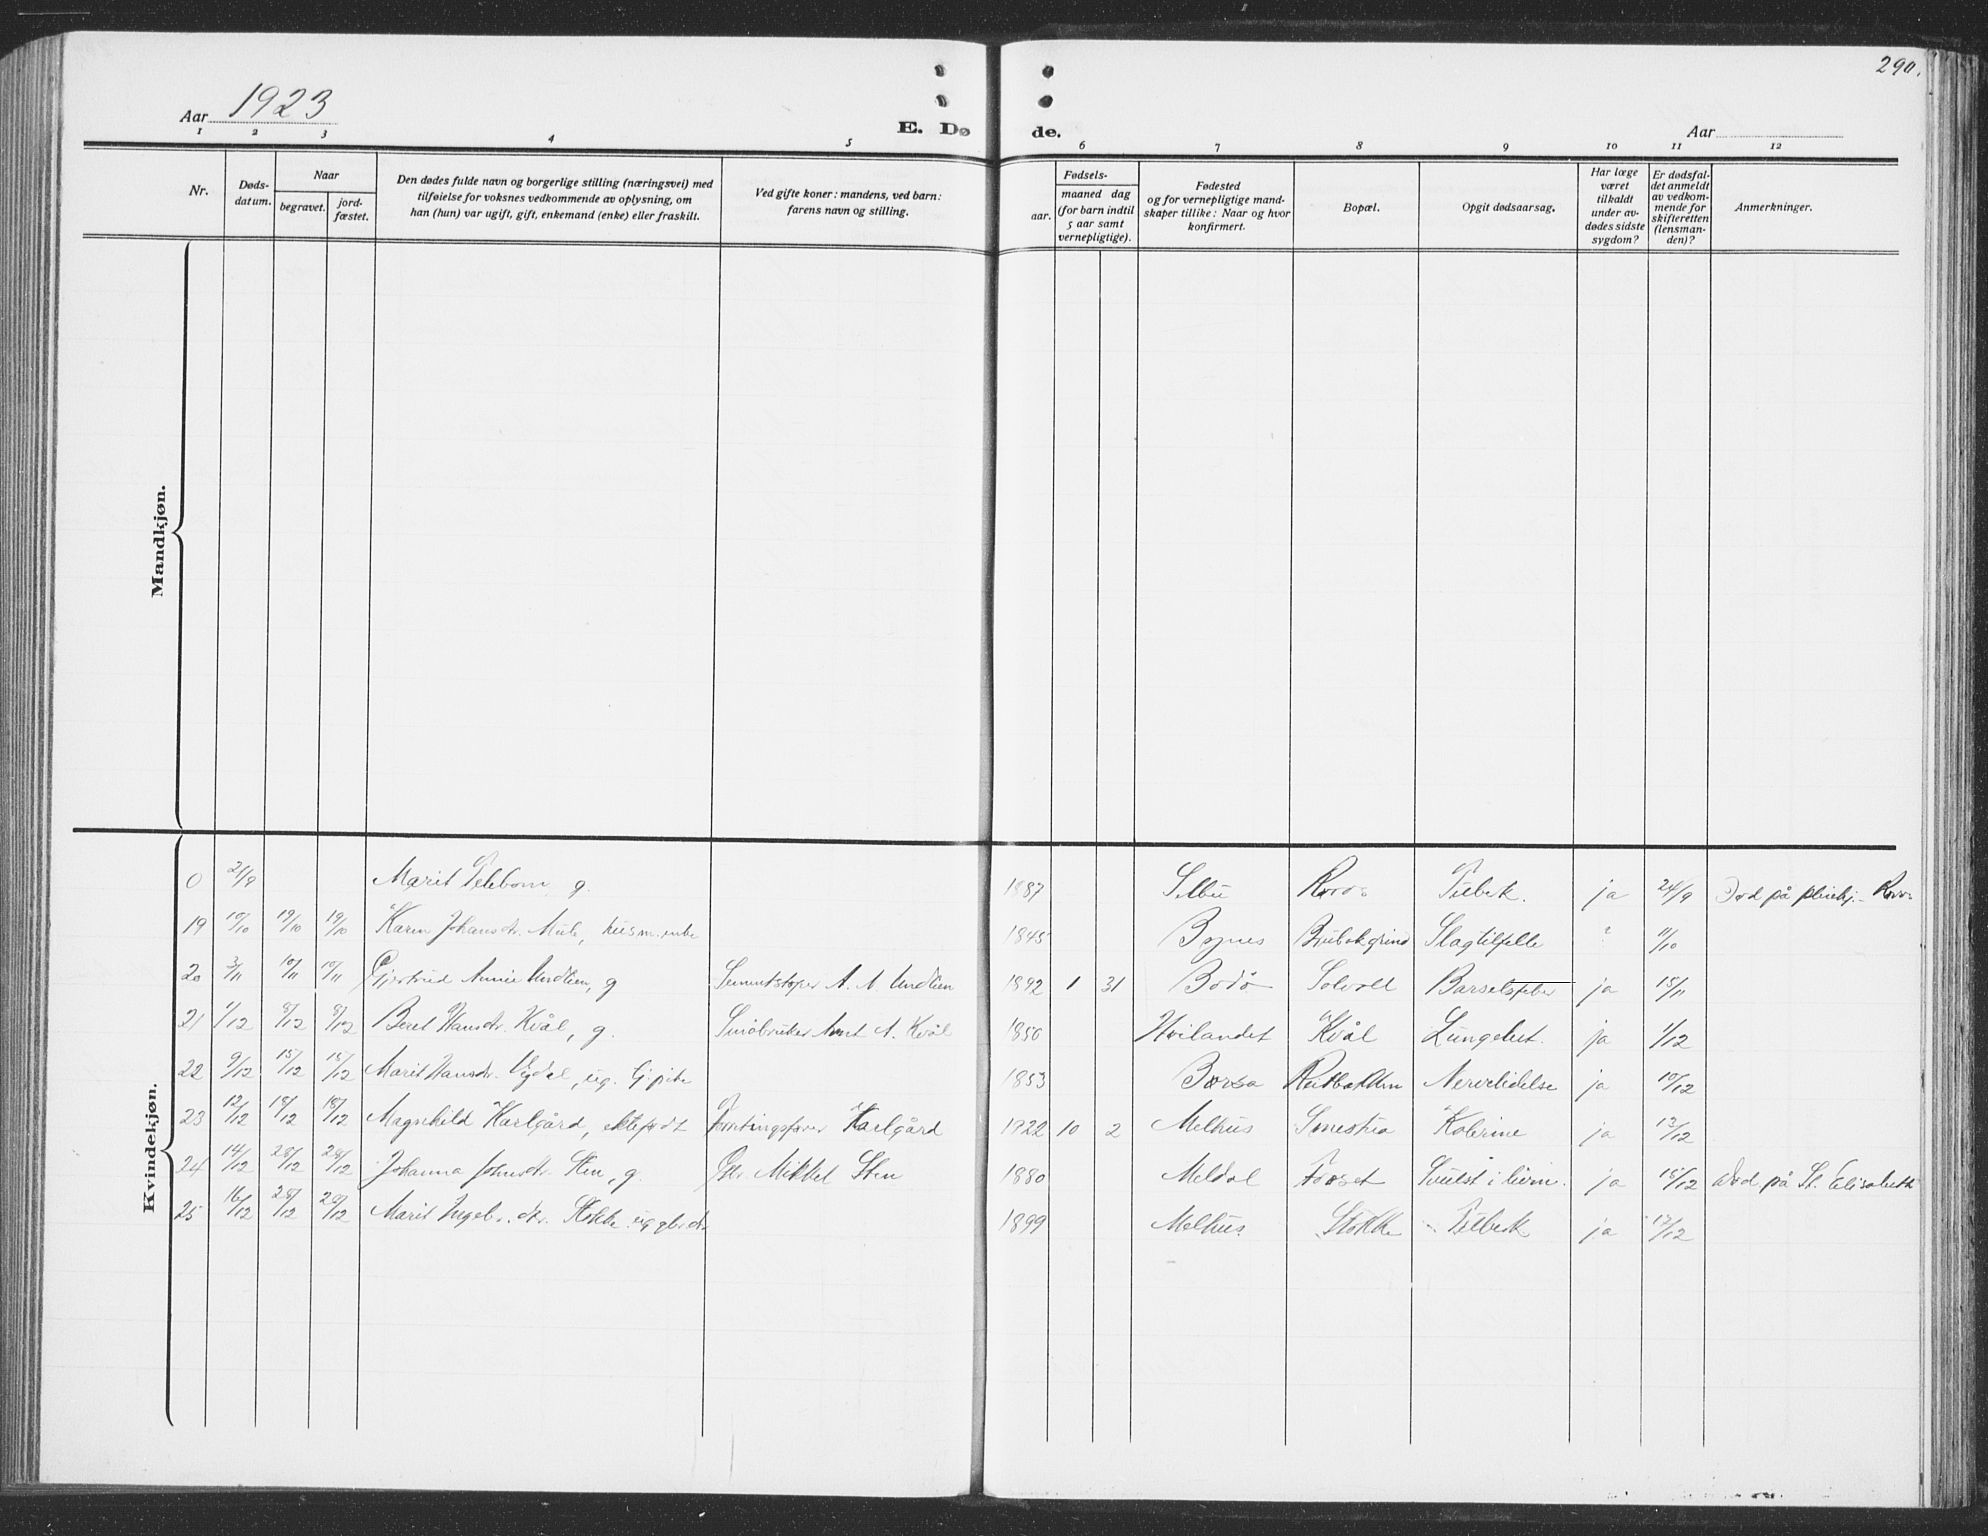 290.
Aar 1923
E. Dø de.
Aar
1 2 3 4 5 6 7 8 9 10 11 12
Nr.
Døds-
datum.
Naar
begravet.
jord-
fæstet.
Den dødes fulde navn og borgerlige stilling (næringsvei) med
tilføielse for voksnes vedkommende av oplysning, om
han (hun) var ugift, gift, enkemand (enke) eller fraskilt.
Ved gifte koner: mandens, ved barn:
farens navn og stilling.
Fødsels-
aar.
maaned dag
(for barn indtil
5 aar samt
vernepligtige).
Fødested
og for vernepligtige mand-
skaper tillike: Naar og hvor
konfirmert.
Bopæl.
Opgit dødsaarsag.
Har læge
været
tilkaldt
under av-
dødes sidste
sygdom?
Er dødsfal-
det anmeldt
av vedkom-
mende for
skifteretten
(lensman-
den)?
Anmerkninger.
Mandkjøn.
Kvindekjøn.
0 21/9 Marit g. 1887 Selbu Røros Tuberk. ja 24/9 Død på pleiehj. Røros
19 10/10 19/10 19/10 Karen Johansdr. Mule, husm.enke 1845 Bynes Slagtilfelle ? 11/10
20 3/11 10/11 10/11 Gjertrud Annie Undlien, g Sementstøper A. A. Undlien 1892 1 31 Bodø Solvoll Barselfeber ja 15/11
21 1/12 8/12 8/12 Beret Hansdr. Kvål, g. Småbruker Arnt A. Kvål 1850 Hitlandet Kvål Lungebet. ja 1/12
22 9/12 15/12 15/12 Marit Hansdr. Øydal, ug. Gjpike 1853 Børsa Nervelidelse ja 10/12
23 12/12 18/12 18/12 Magnhild Karlgård, ektefødt Forretningsfører Karlgård 1922 10 2 Melhus Kolerine ja 13/12
24 14/12 28/12 28/12 Johanna Johnsdr. Sten, g. Gbr. Mikkel Sten 1880 Meldal Forset Svulst i hjern. ja 15/12 Død på St. Elisabeth
25 16/12 28/12 28/12 Marit Ingebr.dtr. Stokke ug gbr.dtr 1899 Melhus Stokke Tuberk ja 17/12